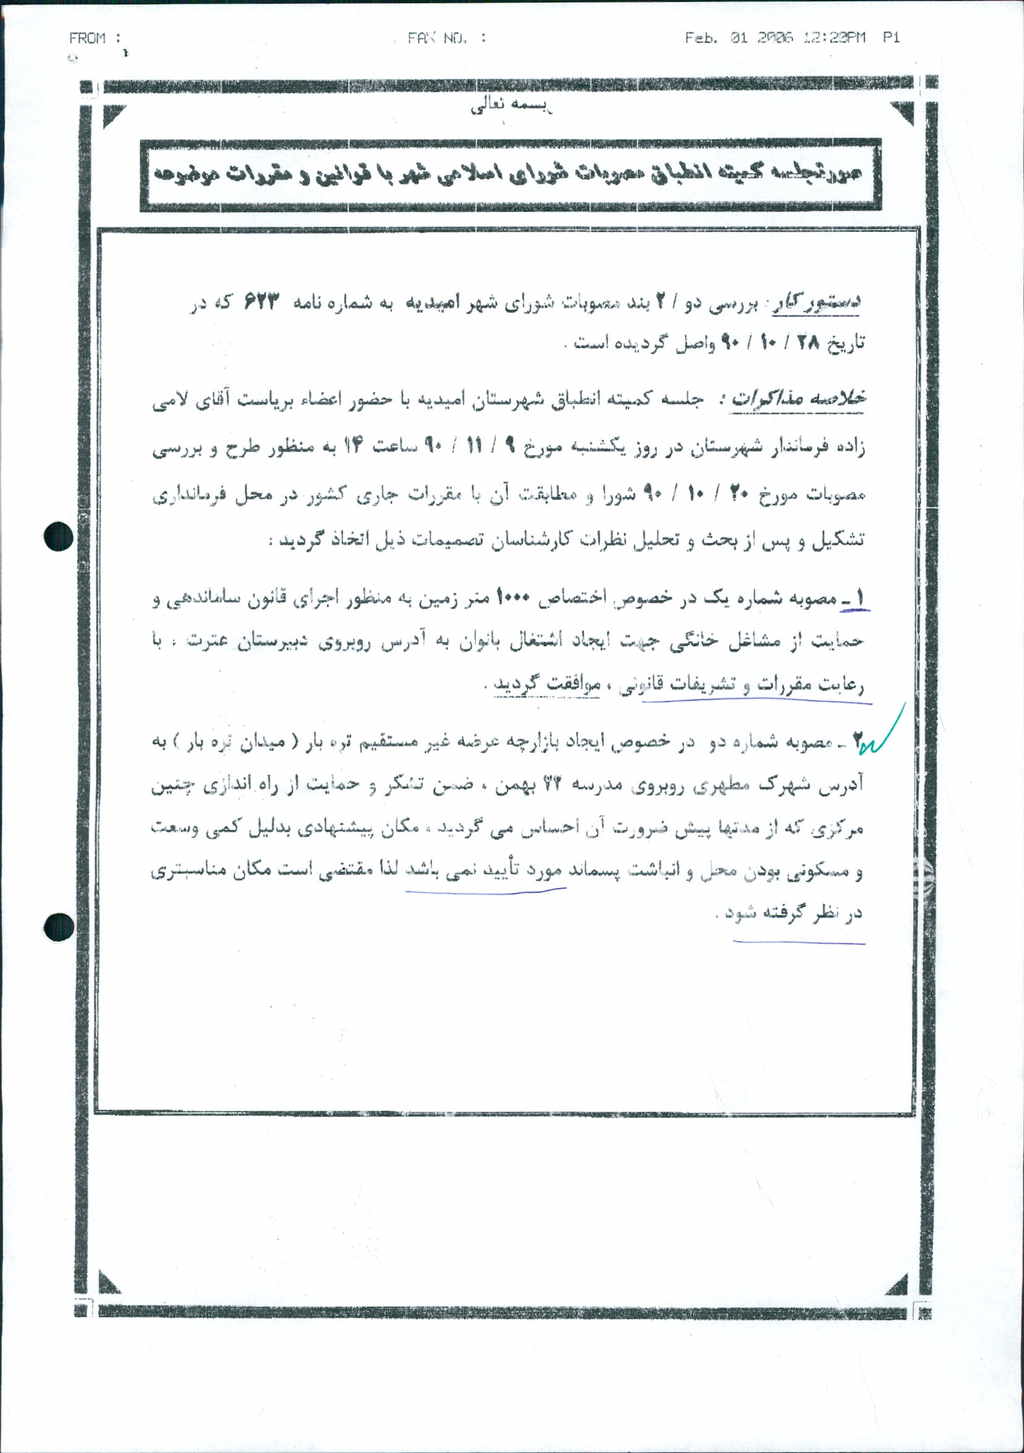 FROM : FAX NO. : Feb. 01 2006 12:20PM P1
بسمه تعالی
صورتجلسه کمیته انطباق مصوبات شورای اسلامی شهر با قوانین و مقررات موضوعه
دستور کار : بررسی دو / ۲ بند مصوبات شورای شهر امیدیه به شماره نامه ۶۲۳ که در
تاریخ ۲۸ / ۱۰ / ۹۰ واصل گردیده است .
خلاصه مذاکرات : جلسه کمیته انطباق شهرستان امیدیه با حضور اعضاء بریاست آقای لامی
زاده فرماندار شهرستان در روز یکشنبه مورخ ۹ / ۱۱ / ۹۰ ساعت ۱۴ به منظور طرح و بررسی
مصوبات مورخ ۲۰ / ۱۰ / ۹۰ شورا و مطابقت آن با مقررات جاری کشور در محل فرمانداری
تشکیل و پس از بحث و تحلیل نظرات کارشناسان تصمیمات ذیل اتخاذ گردید :
۱ ـ مصوبه شماره یک در خصوص اختصاص ۱۰۰۰ متر زمین به منظور اجرای قانون ساماندهی و
حمایت از مشاغل خانگی جهت ایجاد اشتغال بانوان به آدرس روبروی دبیرستان عترت ، با
رعایت مقررات و تشریفات قانونی ، موافقت گردید .
۲ ـ مصوبه شماره دو در خصوص ایجاد بازارچه عرضه غیر مستقیم تره بار ( میدان تره بار ) به
آدرس شهرک مطهری روبروی مدرسه ۲۲ بهمن ، ضمن تشکر و حمایت از راه اندازی چنین
مرکزی که از مدتها پیش ضرورت آن احساس می گردید ، مکان پیشنهادی بدلیل کمی وسعت
و مسکونی بودن محل و انباشت پسماند مورد تأیید نمی باشد لذا مقتضی است مکان مناسبتری
در نظر گرفته شود .